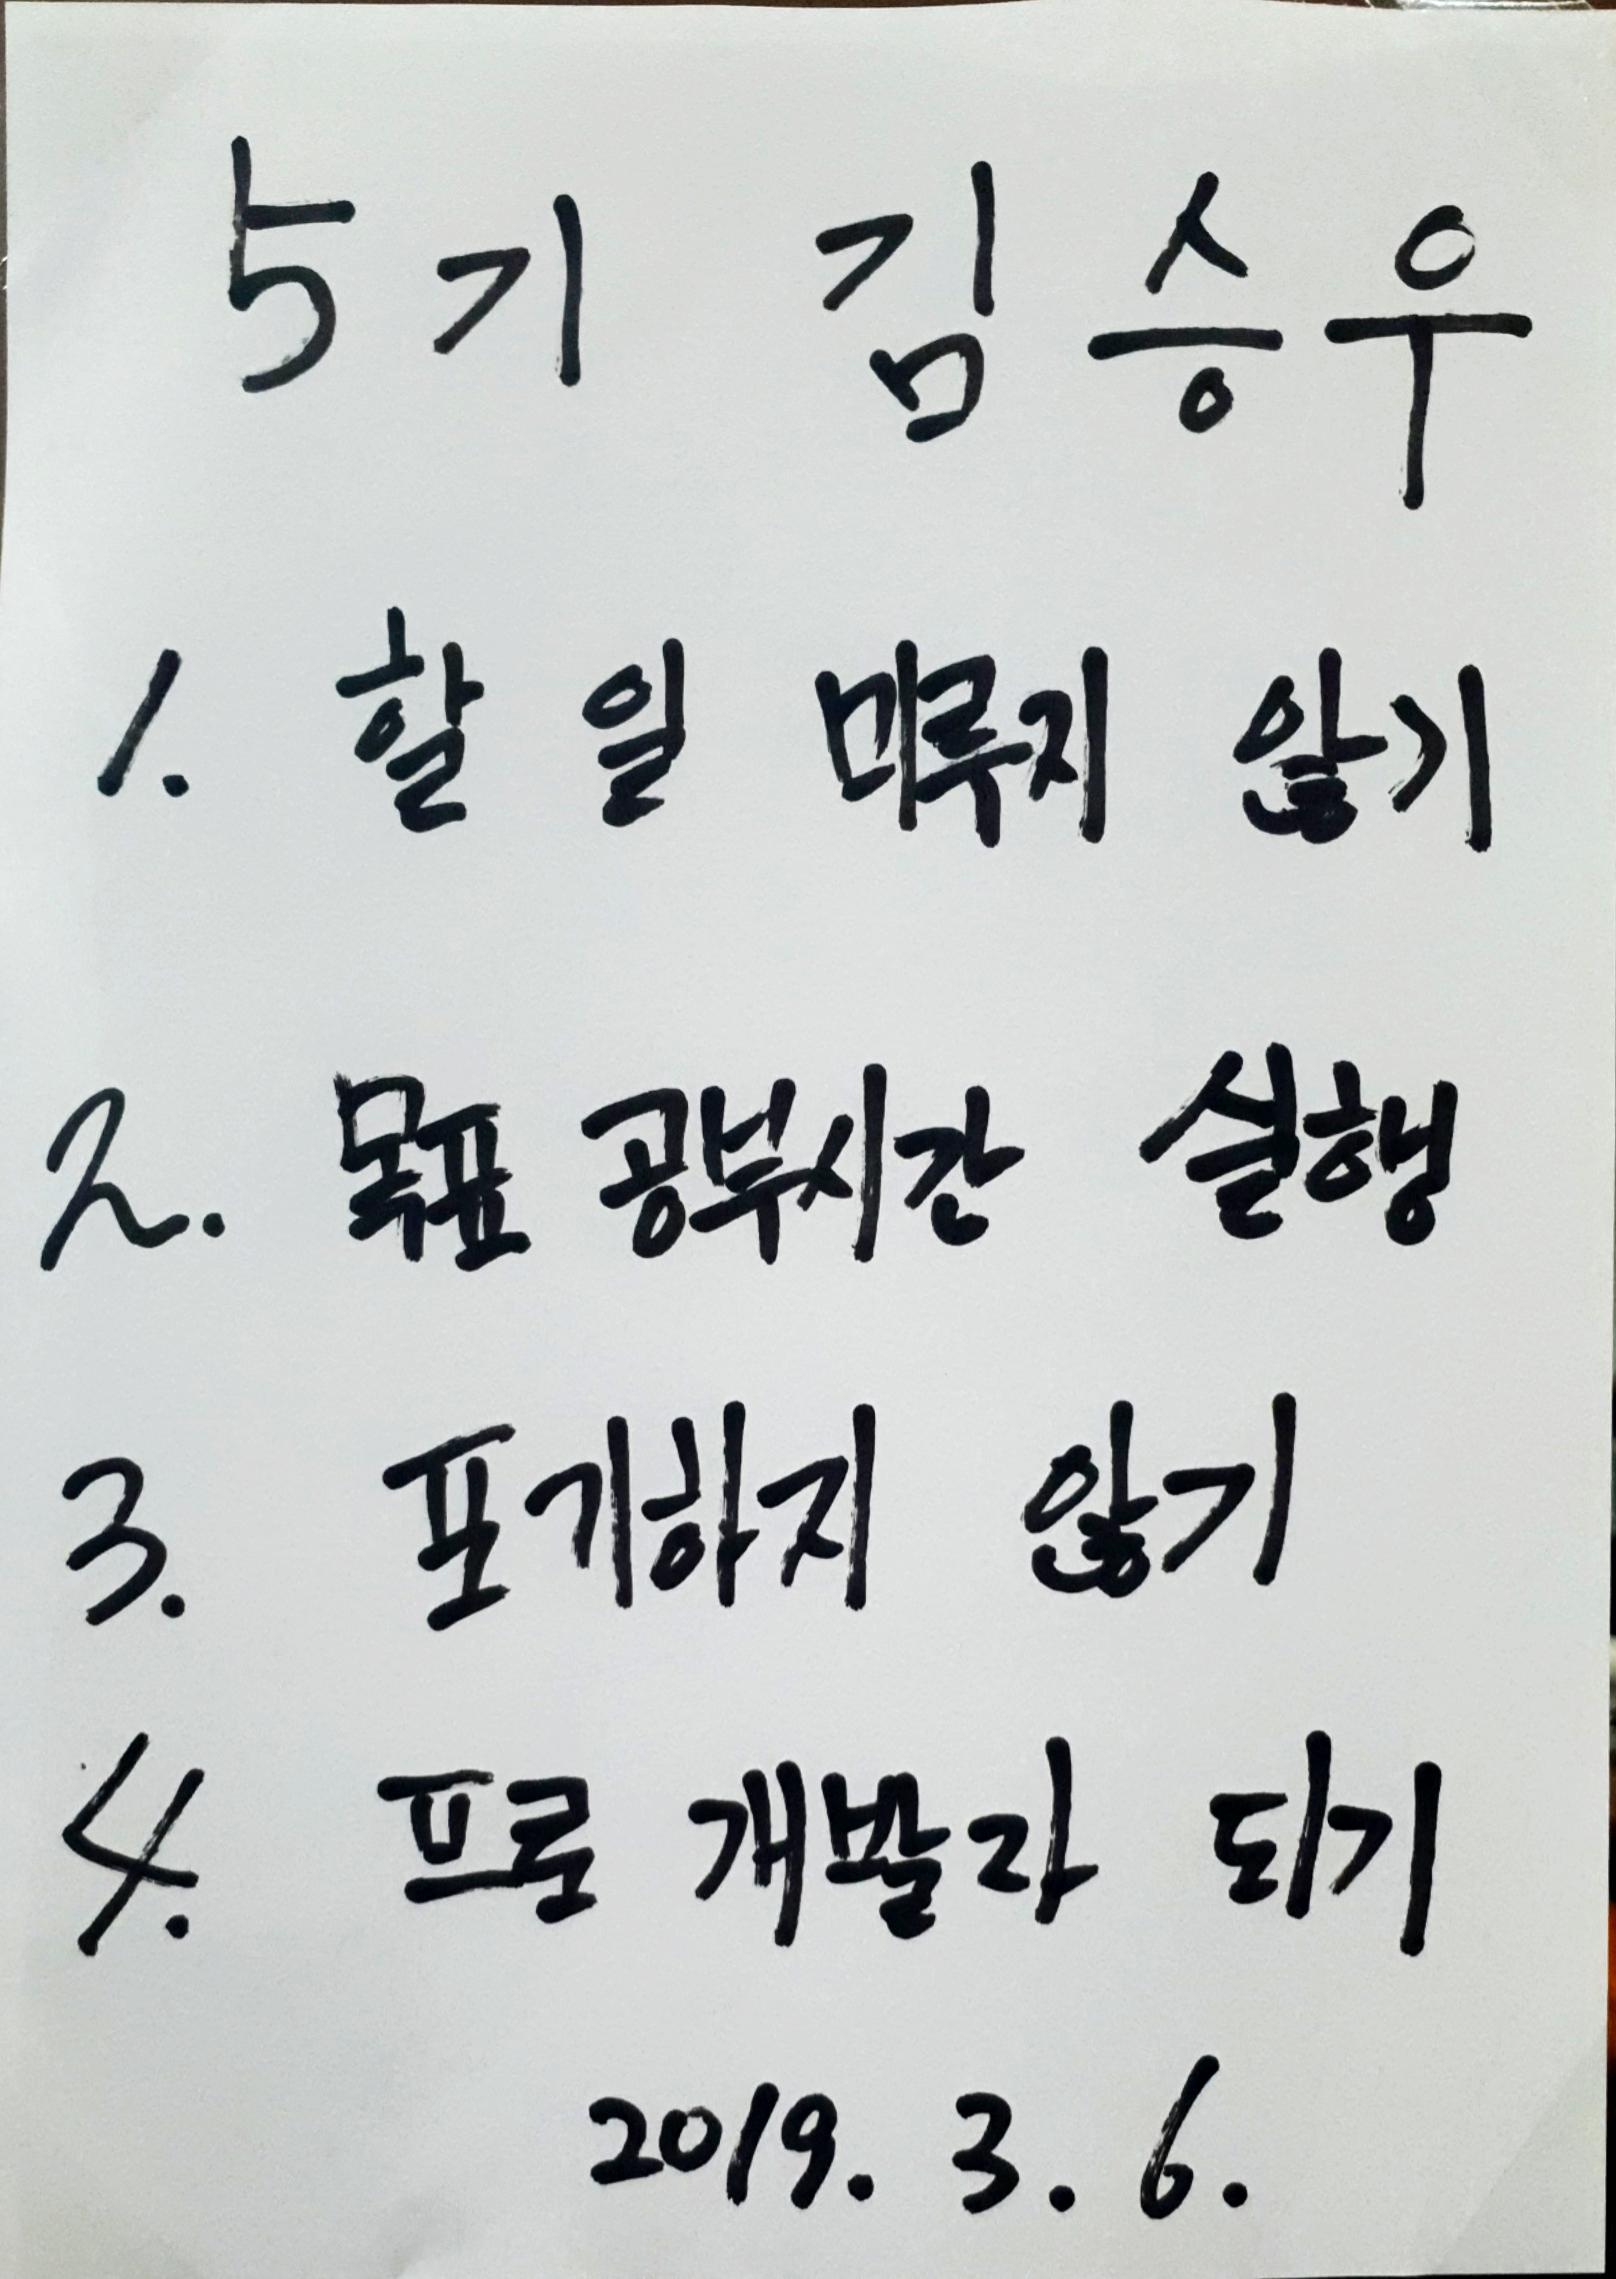 5기 김승우
1. 할 일 미루지 않기
2. 목표 공부시간 실행
3. 포기하지 않기
4. 프로 개발자 되기
2019. 3. 6.